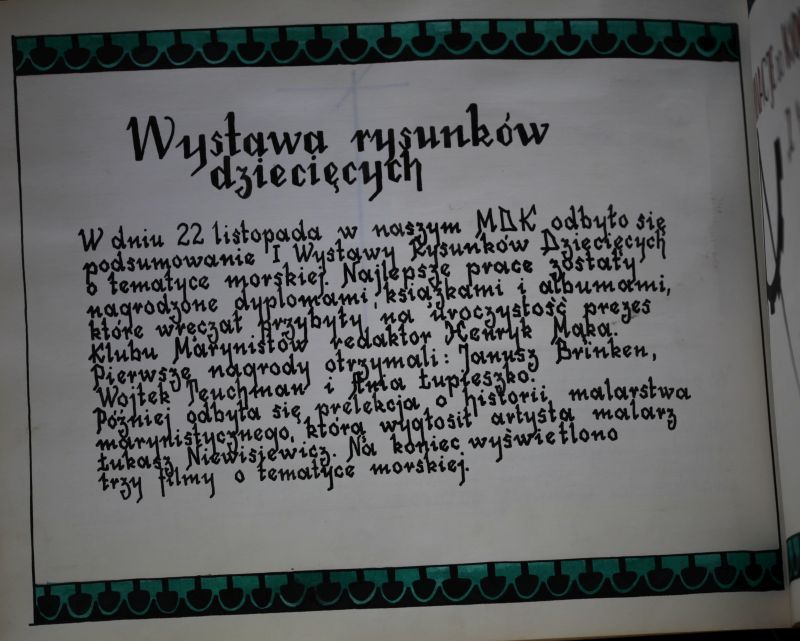 Wystawa rysunków
dziecięcych
W dniu 22 listopada w naszym MDK odbyło się
podsumowanie I Wystawy Rysunków Dziecięcych
o tematyce morskiej. Najlepsze prace zostały
nagrodzone dyplomami, książkami i albumami,
które wręczał przybyły na uroczystość prezes
Klubu Marynistów redaktor Henryk Mąka.
Pierwsze nagrody otrzymali: Janusz Brinken,
Wojtek Teuchman i Ania Łupieszko.
Później odbyła się prelekcja o historii malarstwa
marynistycznego, którą wygłosił artysta malarz
Łukasz Niewisiewicz. Na koniec wyświetlono
trzy filmy o tematyce morskiej.